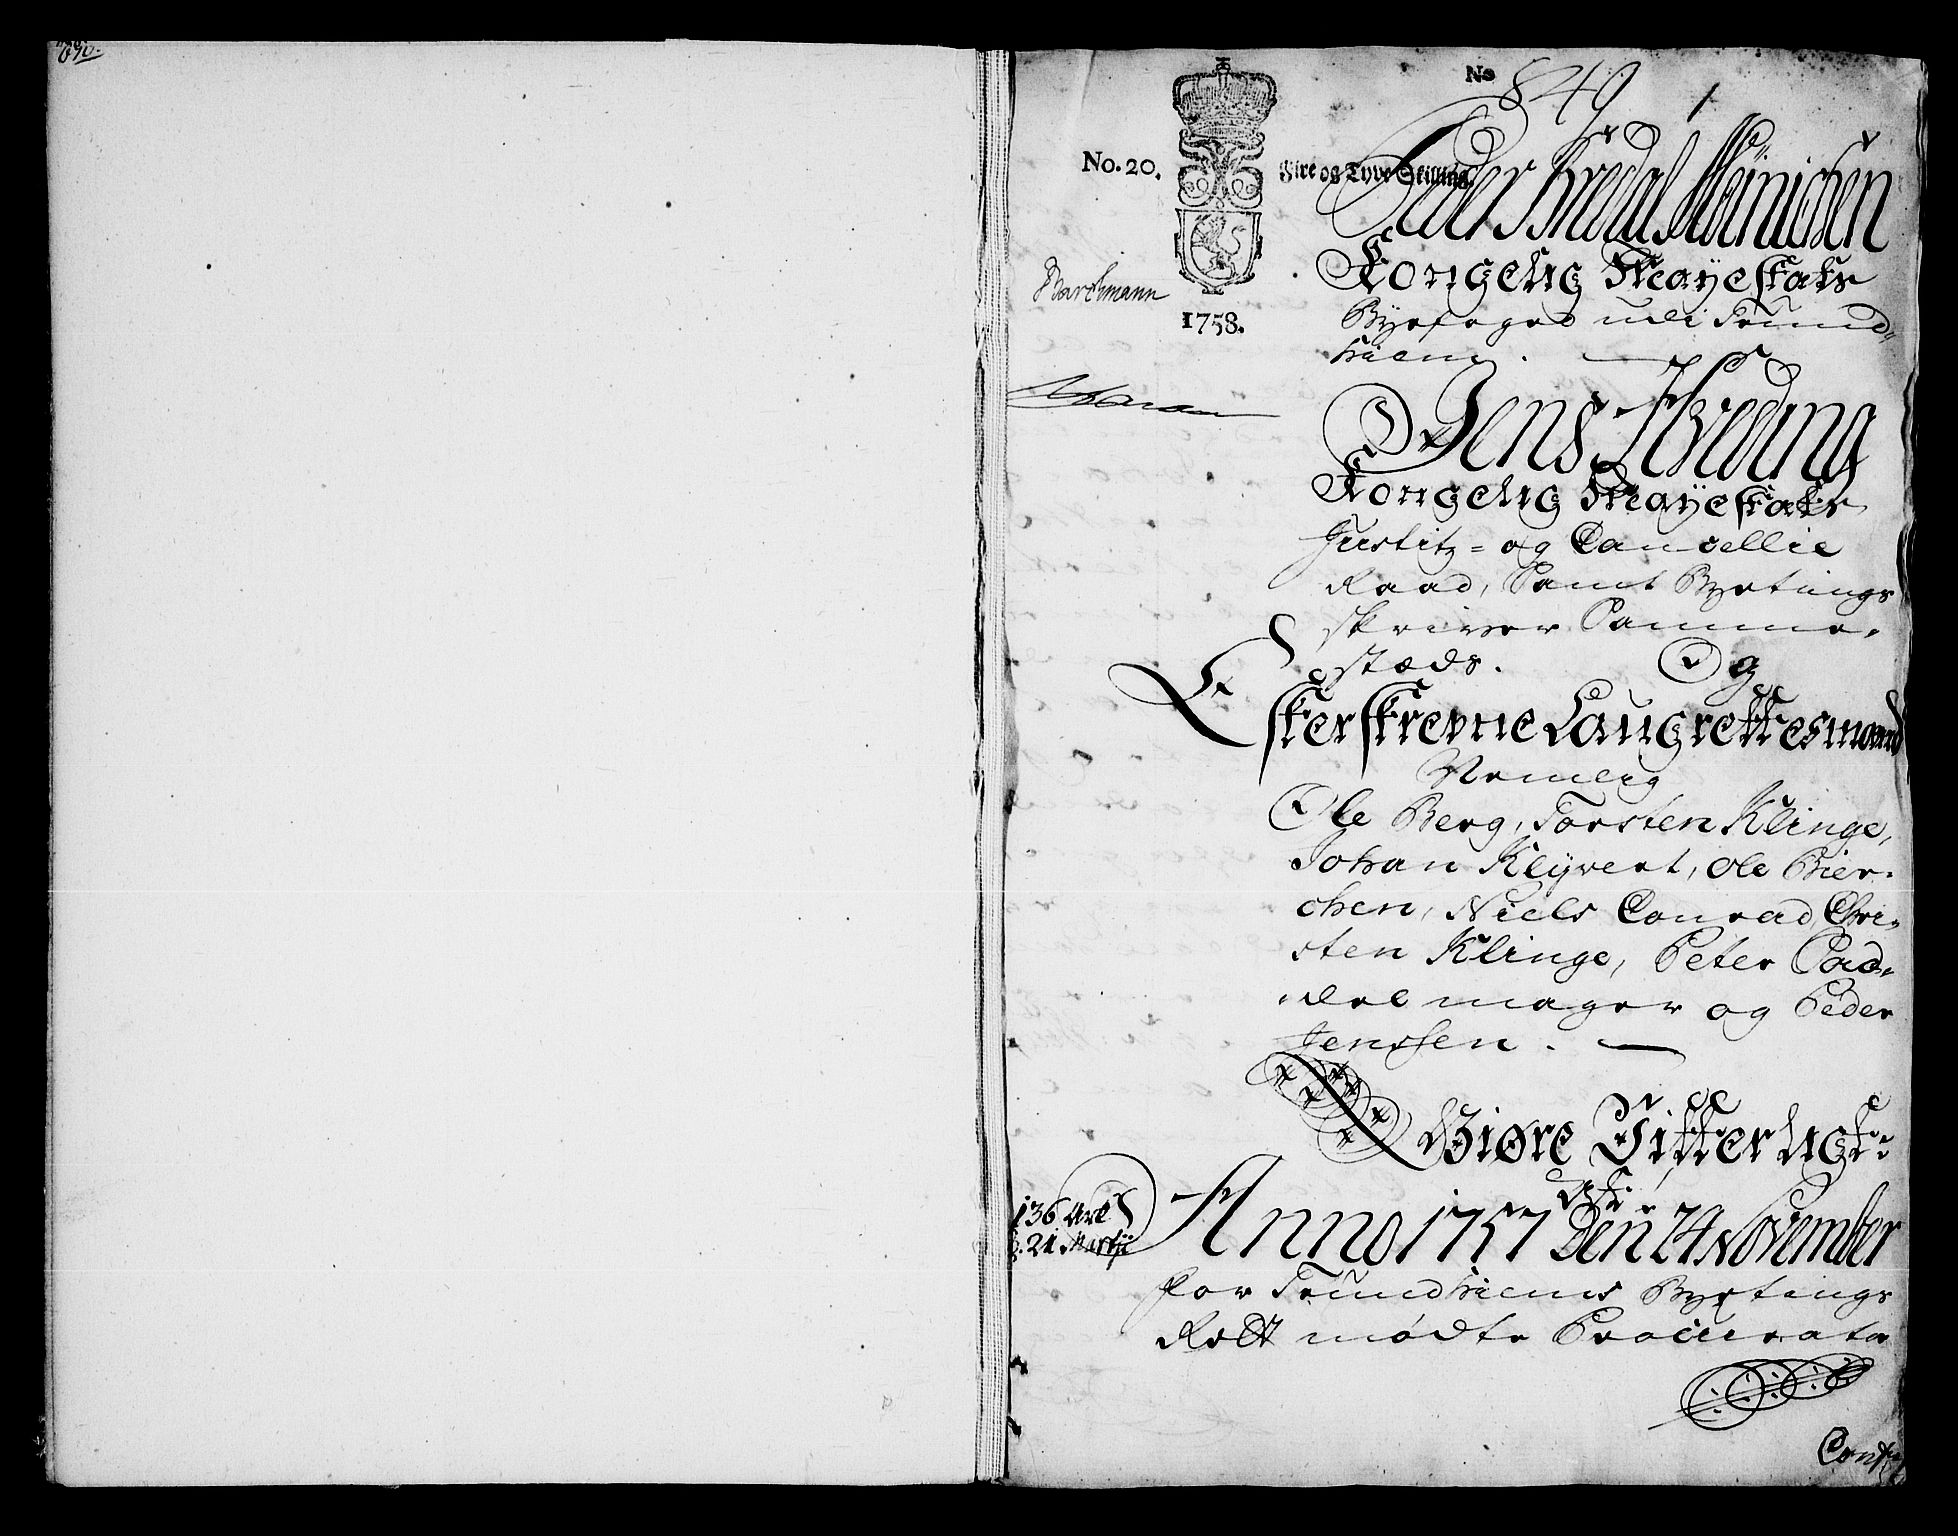 No 849
1
No. 20.
Fire og Tyve Skilling.
Peder Bredal Meinichen
Kongelig Mayestæts
Byefoged udi Trund-
hiem.
1758.
Jens Hveding
Kongelig Mayestæts
Justitz- og Cancellie
Raad, Samt Byetings
skriver Samme-
stæds. Og
Efterskrevne Laugrettesmænd
Nemlig
Ole Berg, Torsten Klinge,
Johan Klÿvert, Ole Bier-
chen, Niels Conrad, Chri-
sten Klinge, Peter Sad-
delmager og Peder
Jenssen.
Giøre Vitterligt
At
136 Ark
21 Martii
Anno 1757 Den 24 November
for Trundhiems Byetings
Rett mødte Procurator